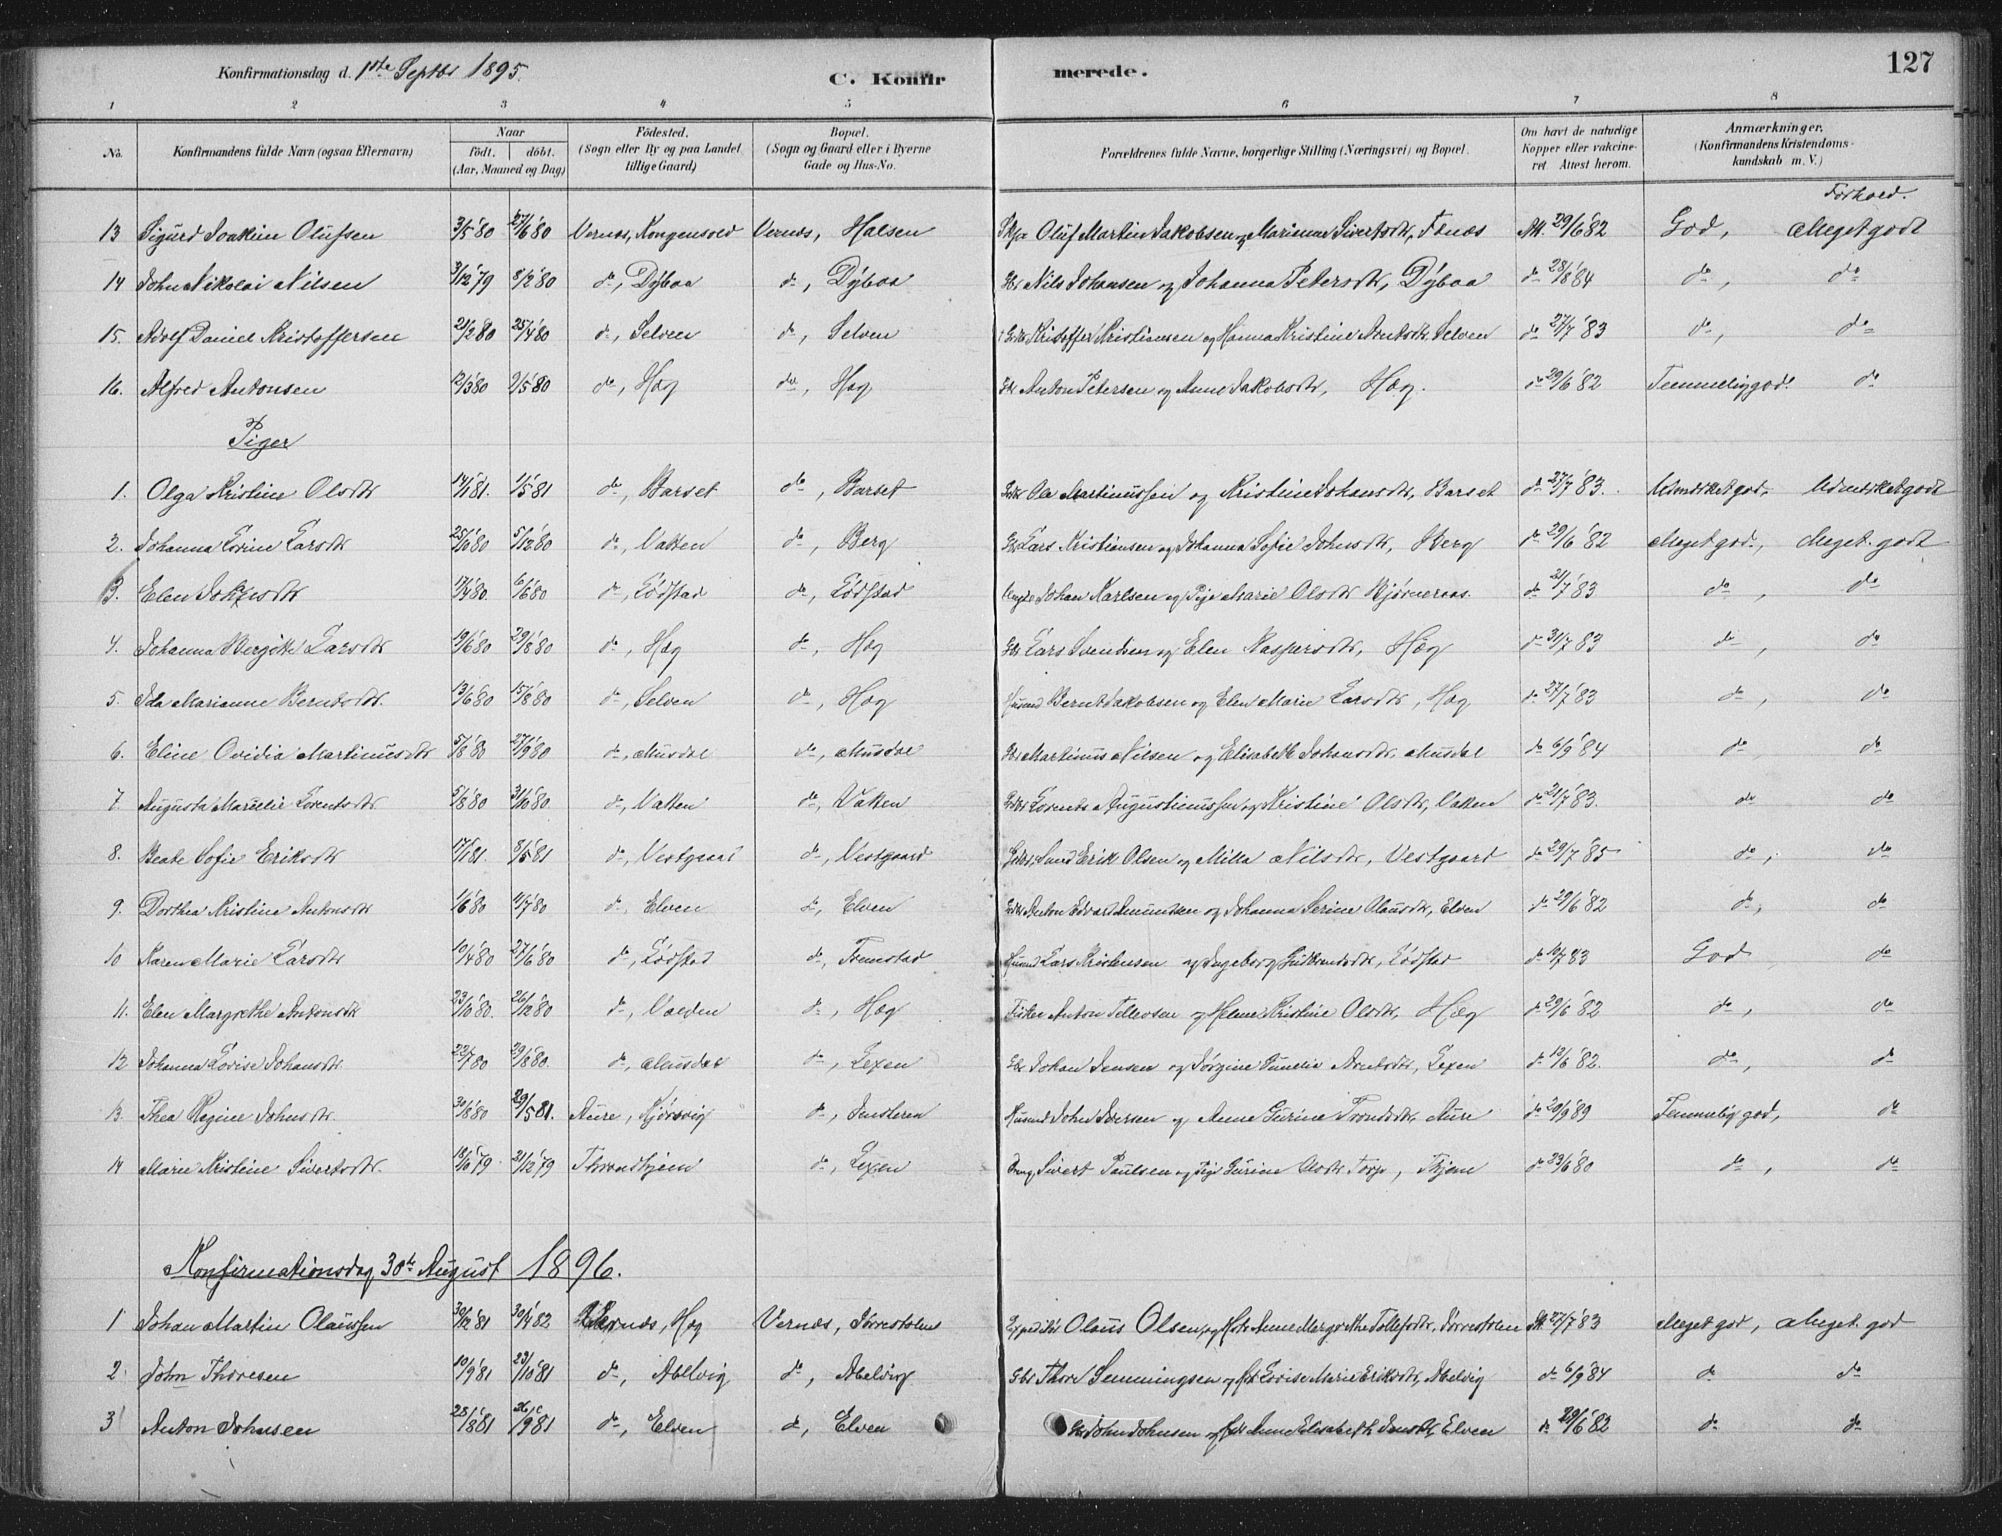 Konfirmationsdag d. 1ste Septbr 1895. C. Konfir merede. 127
1 2 3 4 5 6 7 8
No. Konfirmandens fulde Navn (ogsaa Efternavn) Naar født. døbt. (Aar, Maaned og Dag) Fødested. (Sogn eller By og paa Landet tillige Gaard) Bopæl. (Sogn og Gaard eller i Byerne Gade og Hus-No. Forældrenes fulde Navne, borgerlige Stilling (Næringsvei) og Bopæl. Om havt de naturlige Kopper eller vakcineret. Attest herom. Anmærkninger. (Konfirmandens Kristendomskundskab m. V.)
Forhold.
13 Sigurd Joakim Olufsen 3/5 80 27/6 80 Vernæs, Kongensvold Vernæs, Halsen Oluf Martin Jakobsen og Marianna Sivertsdtr, Fånæs Att. 29/6 82 God, Meget godt
14 John Nikolai Nilsen 3/12 79 8/2 80 do, Dybaa do, Dybaa Gbr Nils Johansen og Johanna Petersdtr, Dybaa do 28/8 84 do, do
15. Adolf Daniel Kristoffersen 21/2 80 25/4 80 do, Selven do, Selven Kristoffer Kristiansen og Hanna Kristine Arntsdtr, Selven do 27/7 83 do, do
16. Alfred Antonsen 12/3 80 9/5 80 do, Hæg do, Hæg Gbr Anton Petersen og Anne Jakobsdtr, Hæg. do 29/6 82 Temmelig god. do
Piger
1. Olga Kristine Olsdtr 14/1 81. 1/5 81 do, Barset do, Barset Ole Martinussen og Kristine Johansdtr, Barset do 27/7 83. Udmærket god, Udmærket godt
2. Johanna Lovine Larsdtr 25/10 80 5/12 80 do, Vatten do, Berg Gbr Lars Kristiansen og Johanna Sofie Johnsdtr, Berg do 29/6 82 Meget god, Meget godt
3. Elen 17/4 80. 6/6 80 do, Lødstad do, Lødstad Johan Karlsen og Pige Marie Olsdtr Bjørneraas. do 21/7 83 do, do
4. Johanna Bergitte Larsdtr 19/6 80 29/8 80 do, Hæg do, Hæg Gbr Lars Svendsen og Elen Kaspersdtr, Hæg do 31/7 83 do, do
5. Ida Marianne Berntsdtr. 13/6 80 15/8 80 do, Selven do, Hæg Husmd Bernt Jakobsen og Elen Marie Larsdtr, Hæg do 27/7 83 do, do
6. Eline Ovidia Martinusdtr 5/8 80 27/9 80 do, Musdal do, Musdal Gbr Martinus Nilsen og Elisabeth Johansdtr, Musdal do 6/9 84 do do
7. Augusta Marielie Lorentsdtr 5/8 80 31/10 80. do, Vatten do, Vatten Lorents Augustinussen og Kristine Olsdtr, Vatten do 21/7 83. do do
8. Beate Sofie Eriksdtr 17/1 81. 8/5 81 do, Vestgaard do, Vestgaard Erik Olsen og Milla Nilsdtr, Vestgaard do 29/7 85 do, do
9. Dorthea Kristine Antonsdtr 1/6 80 11/7 80 do, Elven do, Elven Anton Edvard Amundsen og Johanna Serine Olausdtr, Elven do 29/6 82 do, do
10 Karen Marie Larsdtr 10/4 80 27/6 80 do, Lødstad do, Tremstad Husmd Lars Kristensen og Ingeborg Guldbrandsdtr, Lødstad do 10/7 83 God do
11. Elen Margrethe Antonsdtr 23/10 80. 26/12 80 do, Valden do, Hæg Fisker Anton Tellevsen og Helene Kristine Olsdtr, Hæg do 29/6 82 do, do
12 Johanna Lovise Johansdtr. 22/7 80 29/8 80. do, Musdal do, Lexen Gbr Johan Jensen og Jørgine Arntsdtr, Lexen do 13/6 82. do, do
13. Thea Regine Johnsdtr. 30/8 80 29/5 81. Aure, Kjørsvig do, Insteren Husmd John Iversen og Anne Gurine Trondsdtr, Aure do 20/9 89 Temmelig god, do
14 Marie Kristine Sivertsdtr. 18/10 79 21/12 79 Throndhjem do, Lexen Sivert Paulsen og Pige Gurine Olsdtr Torp, Thjem do 23/6 80 do, do
Konfirmationsdag 30te August 1896.
1 Johan Martin Olaussen 30/12 81 30/4 82 Vernæs, Hæg Vernæs, Olaus Olsen, og Anne Margrethe Tollefsdtr, Att. 27/7 83 Meget god, Meget god
2 John Thoresen 10/9 81 23/10 81 do, Abelvig do, Abelvig Gbr Thore Semmingsen og Lovise Marie Eriksdtr, Abelvig do 6/9 84 do do
3 Anton Johnsen 28/8 81 /9 81 do, Elven do, Elven Gbr John Johnsen og Anne Elisabeth Jensdtr, Elven do 29/6 82 do do